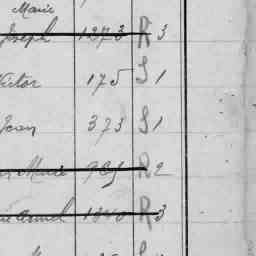 Marie
Joseph 1273 R 3
Victor 175 S 1
Jean 373 S 1
Marie 985 R 2
Armel 1340 R 3